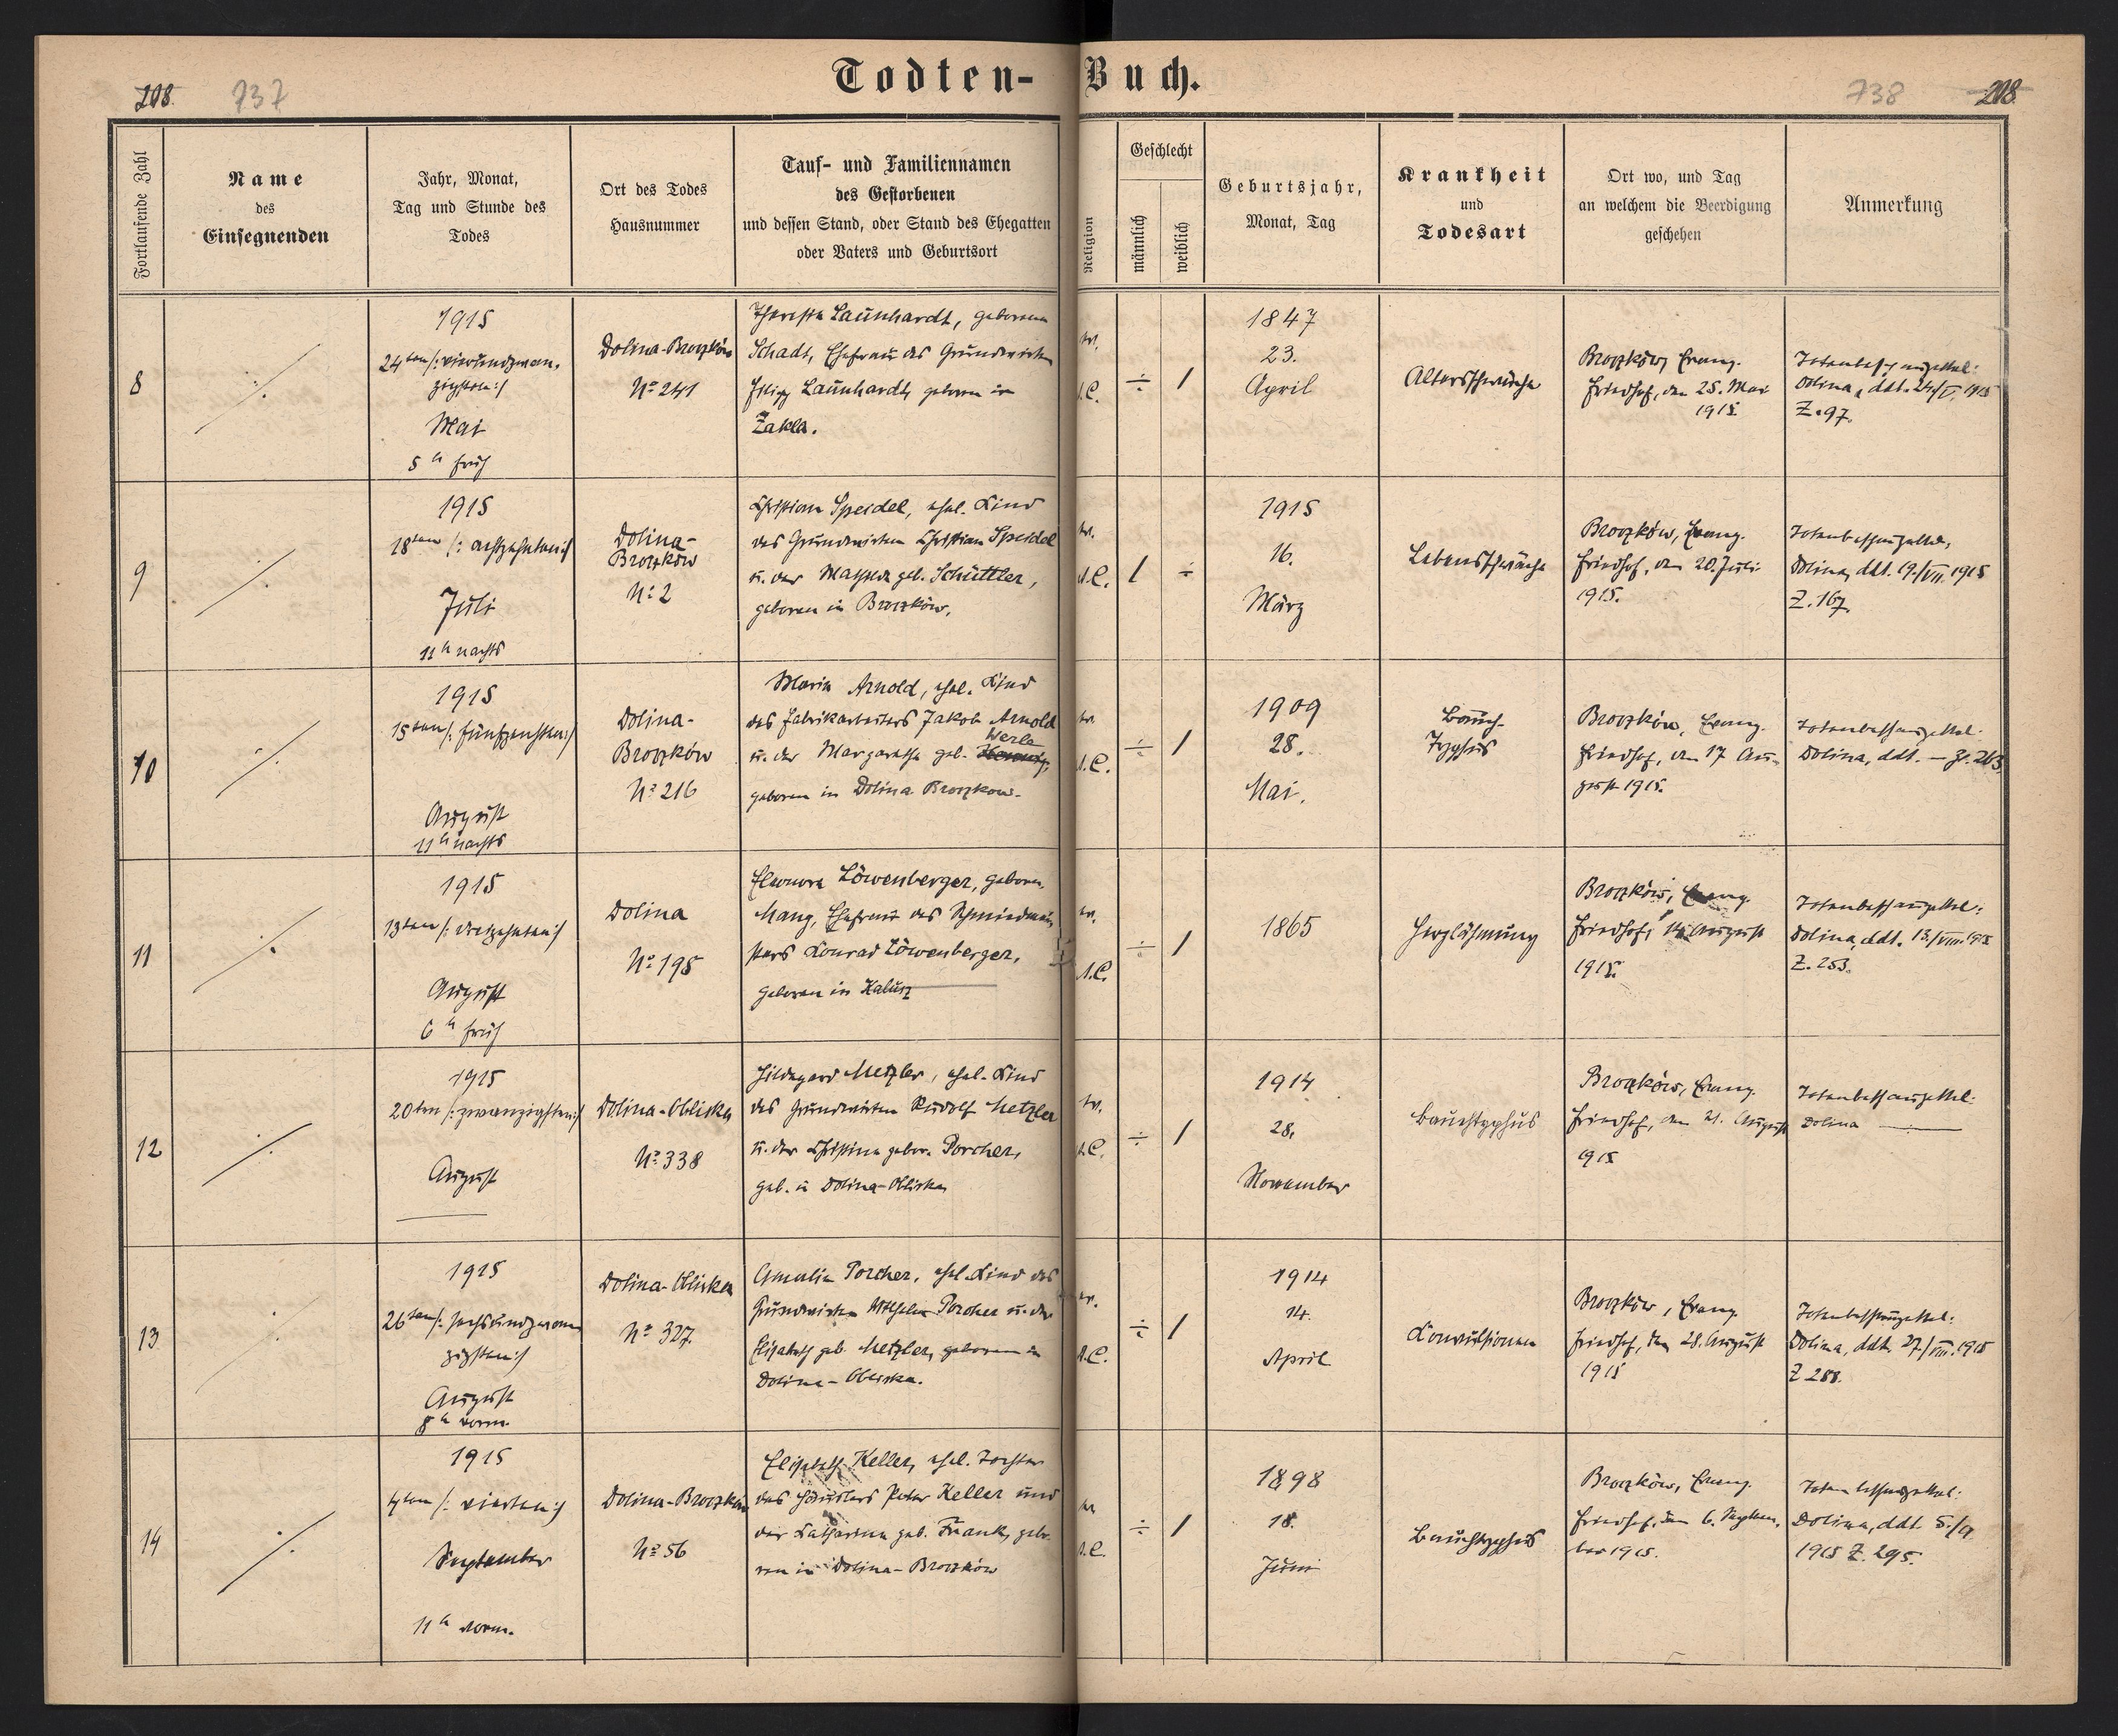 Todten-Buch.
208. 737
738 208.
Fortlaufende Zahl
Name
des
Einsegnenden
Jahr, Monat,
Tag und Stunde des
Todes
Ort des Todes
Hausnummer
Tauf- und Familiennamen
des Gestorbenen
und dessen Stand, oder Stand des Ehegatten
oder Vaters und Geburtsort
Religion
Geschlecht
männlich
weiblich
Geburtsjahr,
Monat, Tag
Krankheit
und
Todesart
Ort wo, und Tag
an welchem die Beerdigung
geschehen
Anmerkung
8
1915
24ten /: vierundzwan-
zigsten :/
Mai
5 h früh
Dolina-Broczków
No 241
Theresia Launhardt, geborene
Schadt, Ehefrau des Grundwirten
Filipp Launhardt, geboren in
Zakla.
ev.
A.C.
÷ 1
1847
23.
April
Altersschwäche
Broczków, Evang.
Friedhof, den 25. Mai
1915
Totenbeschauzettel:
Dolina, ddt. 24/V. 1915
Z. 97.
9
1915
18ten /: achtzehnten :/
Juli
11 h nachts
Dolina-
Broczków
No 2
Christian Speidel, ehel. Kind
des Grundwirten Christian Speidel
u. der Mathilde geb. Schüttler,
geboren in Broczków.
ev.
A.C.
1 ÷
1915
16.
März
Lebensschwäche
Broczków, Evang.
Friedhof, den 20. Juli
1915.
Totenbeschauzettel,
Dolina, ddt. 19./VII. 1915
Z. 167.
10
1915
15ten /: fünfzehnten :/
August
11 h nachts
Dolina-
Broczków
No 216
Maria Arnold, ehel. Kind
des Fabrikarbeiters Jakob Arnold
Werle
u. der Margaretha geb.
geboren in Dolina Broczkow.
ev.
A.C.
÷ 1
1909
28.
Mai.
Bauch-
Typhus
Broczków, Evang.
Friedhof, den 17 Au-
gust 1915.
Totenbeschauzettel:
Dolina, ddt. — Z. 263.
11
1915
13ten /: dreizehnten :/
August
6 h früh
Dolina
No 195
Eleonora Löwenberger, geboren.
Mang, Ehefrau des Schmiedmei-
sters Konrad Löwenberger,
geboren in Kalusz
ev.
A.C.
÷ 1
1865
Herzlähmung
Broczków, Evang.
Friedhof, 14. August
1915.
Totenbeschauzettel:
Dolina, ddt. 13./VIII. 1915
Z. 253.
12
1915
20ten /: zwanzigsten :/
August
Dolina-Obliska
No 338
Hildegard Metzler, ehel. Kind
des Grundwirten Rudolf Metzler
u. der Christina gebor. Porcher,
geb. in Dolina-Obliska
ev.
A.C.
÷ 1
1914
28.
November
Bauchtyphus
Broczków, Evang.
Friedhof, den 21. August
1915
Totenbeschauzettel:
Dolina
13
1915
26ten /: sechsundzwan
zigsten :/
August
8 h vorm.
Dolina-Obliska
No 327.
Amalia Porcher, ehel. Kind des
Grundwirten Wilhelm Porcher u. der
Elisabeth geb. Metzler, geboren in
Dolina-Obliska.
ev.
A.C.
÷ 1
1914
14.
April
Konvulsionen
Broczków, Evang.
Friedhof, den 28. August
1915
Totenbeschauzettel:
Dolina, ddt. 27/VIII. 1915
Z 288.
14
1915
4ten /: vierten :/
September
11 h vorm.
Dolina-Broczków
No 56
Elisabeth Keller, ehel. Tochter
des Häuslers Peter Keller und
der Katharina geb. Frank, gebo-
ren in Dolina-Broczków
ev
A.C.
÷ 1
1898
18.
Juni
Bauchtyphus
Broczków, Evang.
Friedhof, den 6. Septem-
ber 1915.
Totenbeschauzettel:
Dolina, ddt. 5./9
1915 Z. 295.